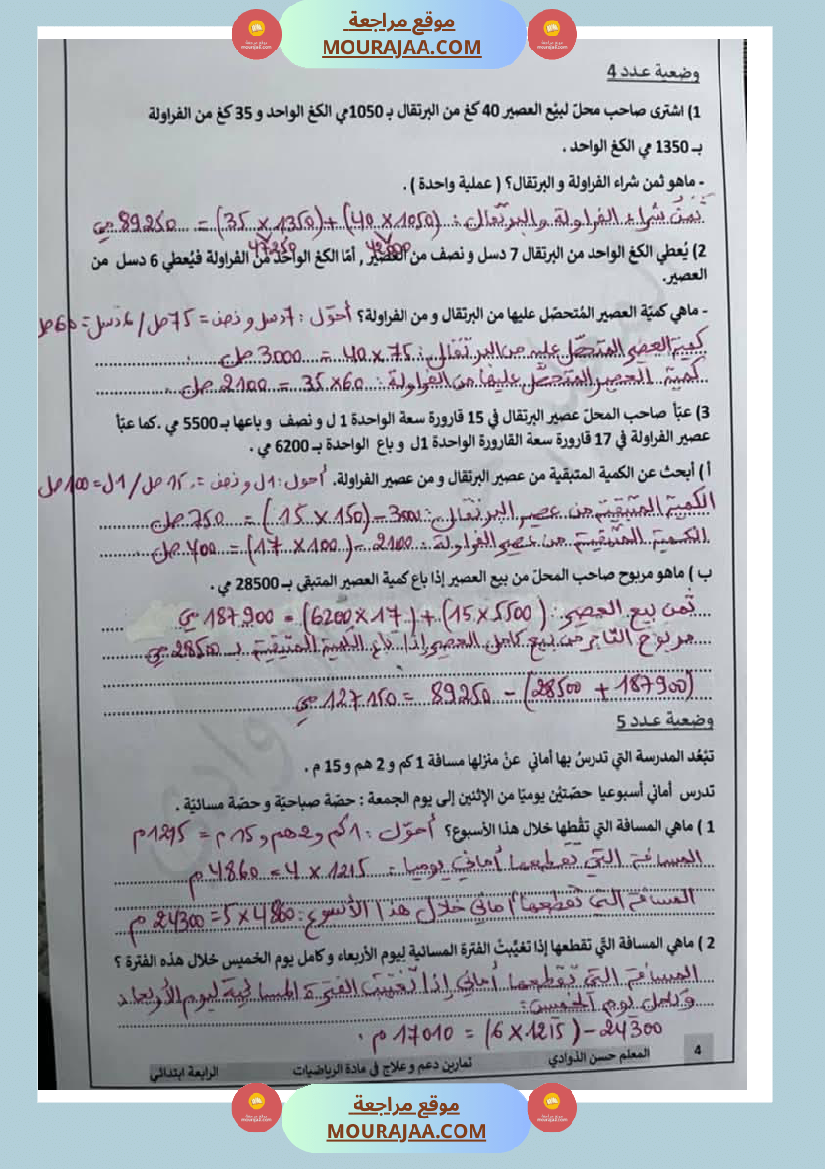 موقع مراجعة
MOURAJAA.COM
وضعية عـدد 4
1) اشترى صاحب محلّ لبيْع العصير 40 كغ من البرتقال بـ 1050مي الكغ الواحد و 35 كغ من الفراولة
بـ 1350 مي الكغ الواحد .
- ماهو ثمن شراء الفراولة و البرتقال؟ ( عملية واحدة ) .
ثمن شراء الفراولة والبرتقال : (40 x 1050)+(35 x 1350) = 89250 مي
47250 42000
2) يُعطي الكغ الواحد من البرتقال 7 دسل و نصف من العصير , أمّا الكغ الواحد من الفراولة فيُعطي 6 دسل من
العصير.
- ماهي كميّة العصير المُتحصّل عليها من البرتقال و من الفراولة؟ أحوّل : 7 دسل و نصف = 75 صل / 6 دسل = 60 صل
كمية العصير المتحصّل عليه من البرتقال : 75 x 40 = 3000 صل
كمية العصير المتحصّل عليها من الفراولة : 60 x 35 = 2100 صل .
3) عبّأ صاحب المحلّ عصير البرتقال في 15 قارورة سعة الواحدة 1 ل و نصف و باعها بـ 5500 مي .كما عبّأ
عصير الفراولة في 17 قارورة سعة القارورة الواحدة 1ل و باع الواحدة بـ 6200 مي .
أ ) أبحث عن الكمية المتبقية من عصير البرتقال و من عصير الفراولة. أحول : 1ل و نصف = 15 صل / 1ل = 100 صل
الكمية المتبقية من عصير البرتقال : 3000 - (150 x 15) = 750 صل
الكمية المتبقية من عصير الفراولة : 2100 - (100 x 17) = 400 صل .
ب ) ماهو مربوح صاحب المحلّ من بيع العصير إذا باع كمية العصير المتبقي بـ 28500 مي .
ثمن بيع العصير : (5500 x 15) + (17 x 6200) = 187900 مي
مربوح التاجر من بيع كامل العصير إذا باع الكمية المتبقية بـ 28500 مي
(187900 + 28500) - 89250 = 127150 مي
وضعية عـدد 5
تبْعُد المدرسة التي تدرسُ بها أماني عنْ منزلها مسافة 1 كم و 2 هم و 15 م .
تدرس أماني أسبوعيا حصّتيْن يوميّا من الإثنين إلى يوم الجمعة : حصّة صباحيّة و حصّة مسائيّة .
1 ) ماهي المسافة التي تقْطعها خلال هذا الأسبوع؟ أحوّل : 1 كم و 2 هم و 15 م = 1215 م
المسافة التي تقطعها أماني يوميا : 1215 x 4 = 4860 م
المسافة التي تقطعها أماني خلال هذا الأسبوع : 4860 x 5 = 24300 م
2 ) ماهي المسافة التّي تقطعها إذا تغيّبتْ الفترة المسائية ليوم الأربعاء و كامل يوم الخميس خلال هذه الفترة ؟
المسافة التي تقطعها أماني إذا تغيبت الفترة المسائية ليوم الأربعاء
وكامل يوم الخميس :
24300 - (1215 x 6) = 17010 م .
4 المعلم حسن الذوادي تمارين دعم و علاج في مادة الرياضيات الرابعة ابتدائي
موقع مراجعة
MOURAJAA.COM